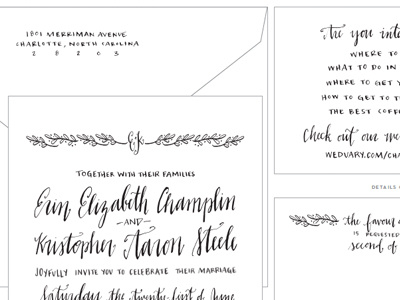 1801 MERRIMAN AVENUE
CHARLOTTE, NORTH CAROLINA
2 8 2 0 3
E & K
TOGETHER WITH THEIR FAMILIES
Erin Elizabeth Champlin
—AND—
Kristopher Aaron Steele
JOYFULLY INVITE YOU TO CELEBRATE THEIR MARRIAGE
Saturday the twenty-first of June
Are you inte
WHERE TO
WHAT TO DO IN
WHERE TO GET Y
HOW TO GET TO T
THE BEST COFF
Check out our we
WEDVARY.COM/CHA
DETAILS
the favour
IS REQUESTED
second of